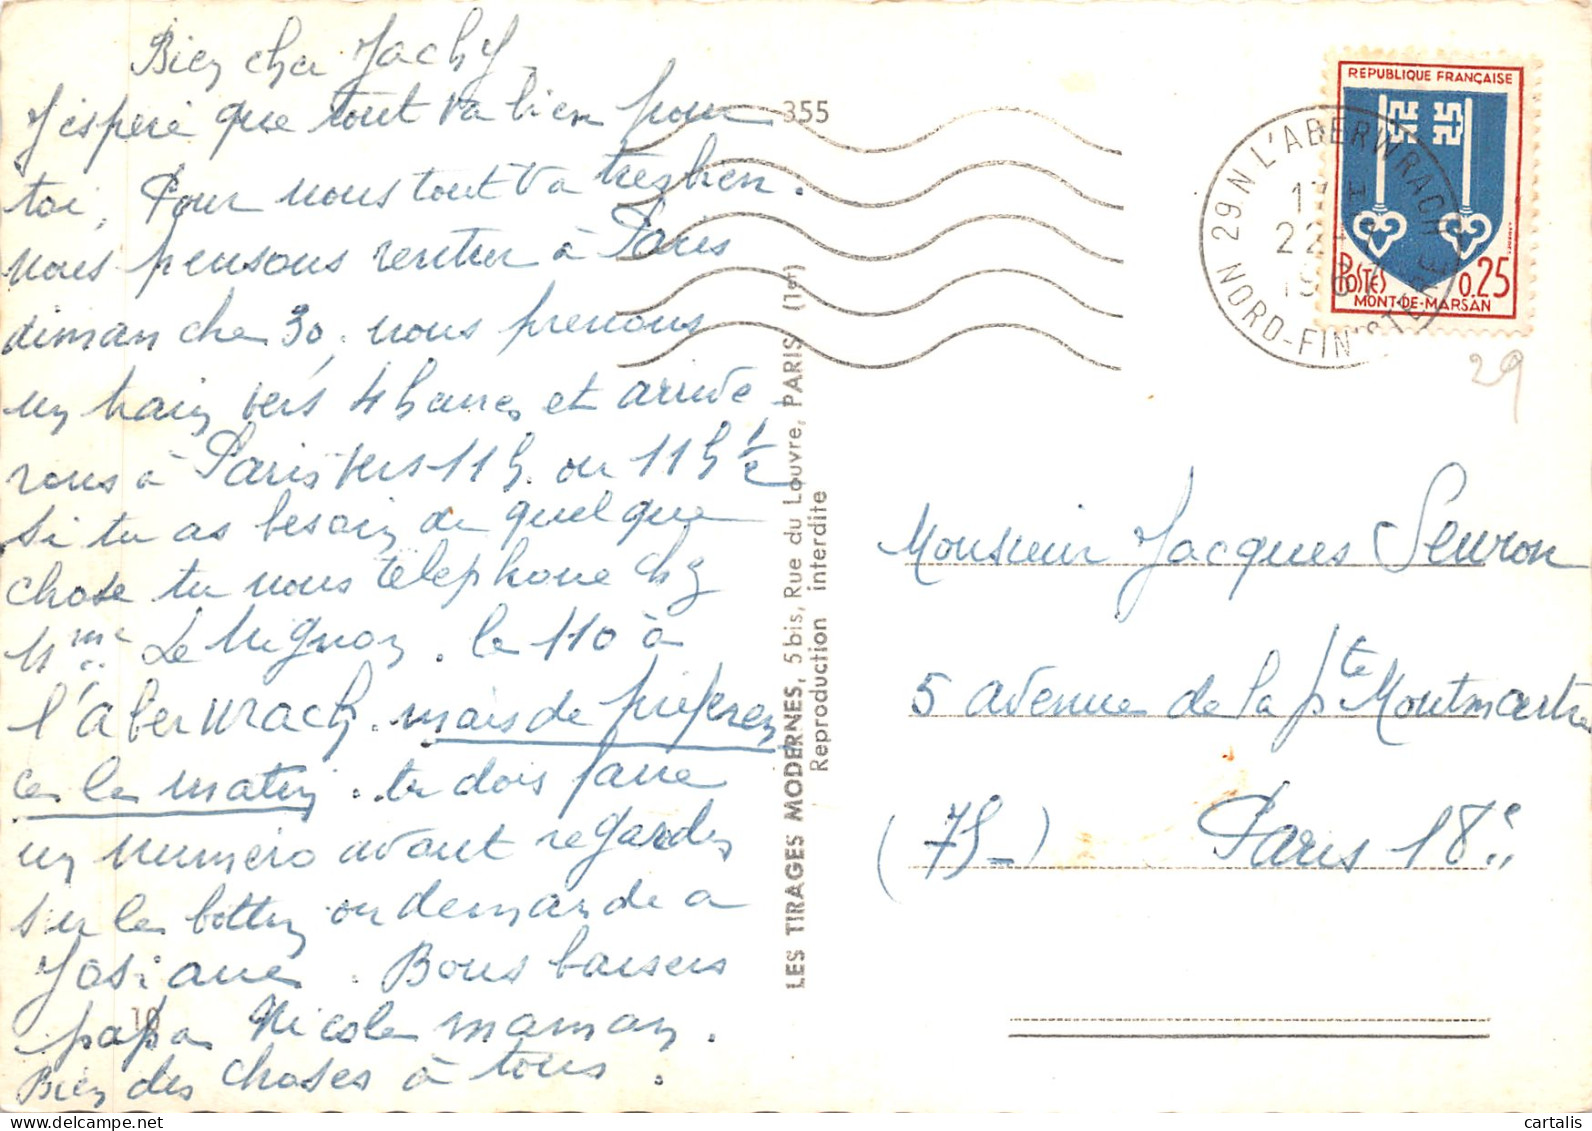 Bien cher Jacky
J'espère que tout va bien pour
toi, Pour nous tout va tres bien.
nous pensons rentrer à Paris
dimanche 30, nous prenons
un train vers 4 heures et arrive
rons à Paris vers 11 h. ou 11 h 1/2
si tu as besoin de quelque
chose tu nous téléphone chez
Mme Le Mignon. le 110 à
l'aberwrach. mais de préferen
ce le matin. tu dois faire
un numéro avant regardes
sur le bottin ou demande a
Josiane. Bons baisers
papa Nicole maman.
Bien des choses à tous.
10
355
LES TIRAGES MODERNES, 5 bis, Rue du Louvre, PARIS (1er)
Reproduction interdite
29.N L'ABERWRACH
17 H
22-7
196
NORD-FINISTERE
REPUBLIQUE FRANÇAISE
POSTES 0,25
MONT-DE-MARSAN
29
Monsieur Jacques Seuron
5 avenue de la Pte Montmartre
(75) Paris 18e
cartalis